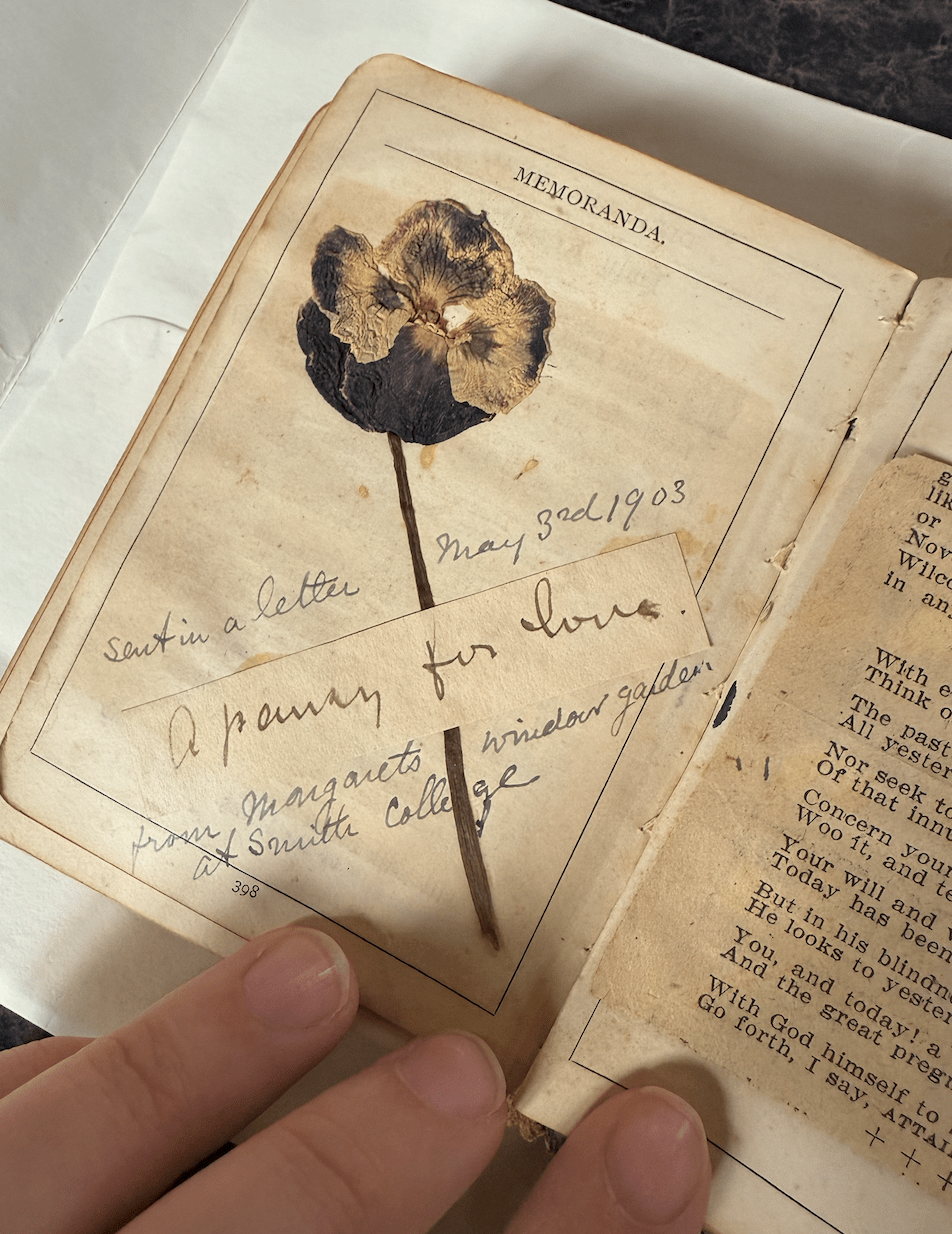 MEMORANDA.
sent in a letter May 3rd 1903
A pansy for love.
from Margarets window garden
at Smith College
398
g
lik
or
Nov
Wilco
in an
With e
Think o
The past
All yester
Nor seek to
Of that innu
Concern your
Woo it, and te
Your will and
Today has been
But in his blindne
He looks to yester
You, and today! a
And the great pregn
With God himself to
Go forth, I say, ATTAI
+ + +